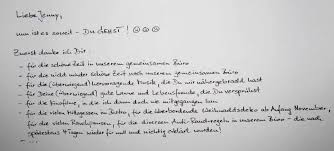 Liebe Jenny,
nun ist es soweit - DU GEHST! ☹☹☹
Zuerst danke ich Dir
- für die schöne Zeit in unserem gemeinsamen Büro
- für die nicht minder schöne Zeit nach unserem gemeinsamen Büro
- für die (überwiegend) hervorragende Musik, die Du mir nähergebracht hast
- für Deine (überwiegend) gute Laune und Lebensfreude, die Du versprühst
- für die Kinofilme, in die ich dann doch nie mitgegangen bin
- für die vielen Mittagessen im Bistro, für die überbordende Weihnachtsdeko ab Anfang November,
für die vielen Rauchpausen, für die diversen Aufräum in unserem Büro - die nach
spätestens 4 Tagen wieder für null und nichtig erklärt wurden!
- ...